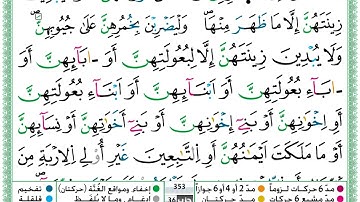 زِينَتَهُنَّ إِلَّا مَا ظَهَرَ مِنْهَا ۖ وَلْيَضْرِبْنَ بِخُمُرِهِنَّ عَلَىٰ جُيُوبِهِنَّ ۖ
وَلَا يُبْدِينَ زِينَتَهُنَّ إِلَّا لِبُعُولَتِهِنَّ أَوْ ءَابَآئِهِنَّ أَوْ
ءَابَآءِ بُعُولَتِهِنَّ أَوْ أَبْنَآئِهِنَّ أَوْ أَبْنَآءِ بُعُولَتِهِنَّ
أَوْ إِخْوَٰنِهِنَّ أَوْ بَنِىٓ إِخْوَٰنِهِنَّ أَوْ بَنِىٓ أَخَوَٰتِهِنَّ أَوْ نِسَآئِهِنَّ
أَوْ مَا مَلَكَتْ أَيْمَٰنُهُنَّ أَوِ ٱلتَّٰبِعِينَ غَيْرِ أُو۟لِى ٱلْإِرْبَةِ مِنَ
مدّ ٦ حركات لزوماً مدّ ٢ أو ٤ أو ٦ جوازاً 353 إخفاء ومواقع الغُنَّة (حركتان) تفخيم
مدّ مشبع ٦ حركات مدّ حركتان إدغام، وما لا يُلفَظ قلقلة